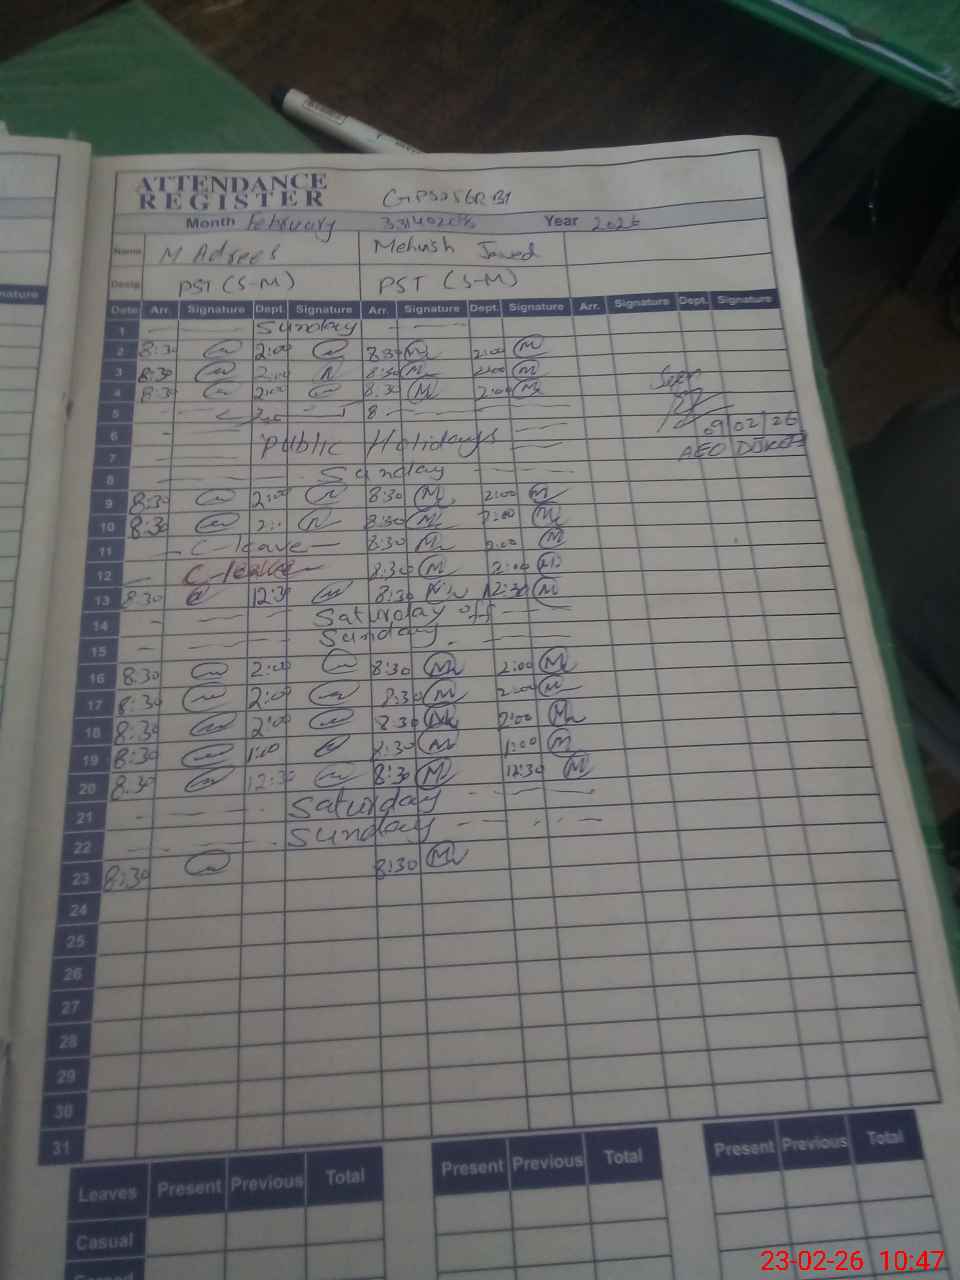 ATTENDANCE
REGISTER
Month February Year 2026
Name M Adrees Mehwish Javed
Desig PST (S-M) PST (S-M)
Date Arr. Signature Dept. Signature Arr. Signature Dept. Signature Arr. Signature Dept. Signature
1 Sunday
2 8:30 2:00 8:30 2:00
3 8:30 2:00 8:30 2:00
4 8:30 2:00 8:30 2:00
5
6 Public Holidays
7
8 Sunday
09/02/26
AEO
9 8:30 2:00 8:30 2:00
10 8:30 8:30 2:00
11 C-leave 8:30 2:00
12 C-leave 8:30 2:00
13 8:30 12:30 8:30 12:30
14 Saturday off
15 Sunday
16 8:30 2:00 8:30 2:00
17 8:30 2:00 8:30 2:00
18 8:30 2:00 8:30 2:00
19 8:30 1:00 8:30 1:00
20 8:30 12:30 8:30 12:30
21 Saturday
22 Sunday
23 8:30 8:30
24
25
26
27
28
29
30
31
Leaves Present Previous Total Present Previous Total Present Previous Total
Casual
23-02-26 10:47